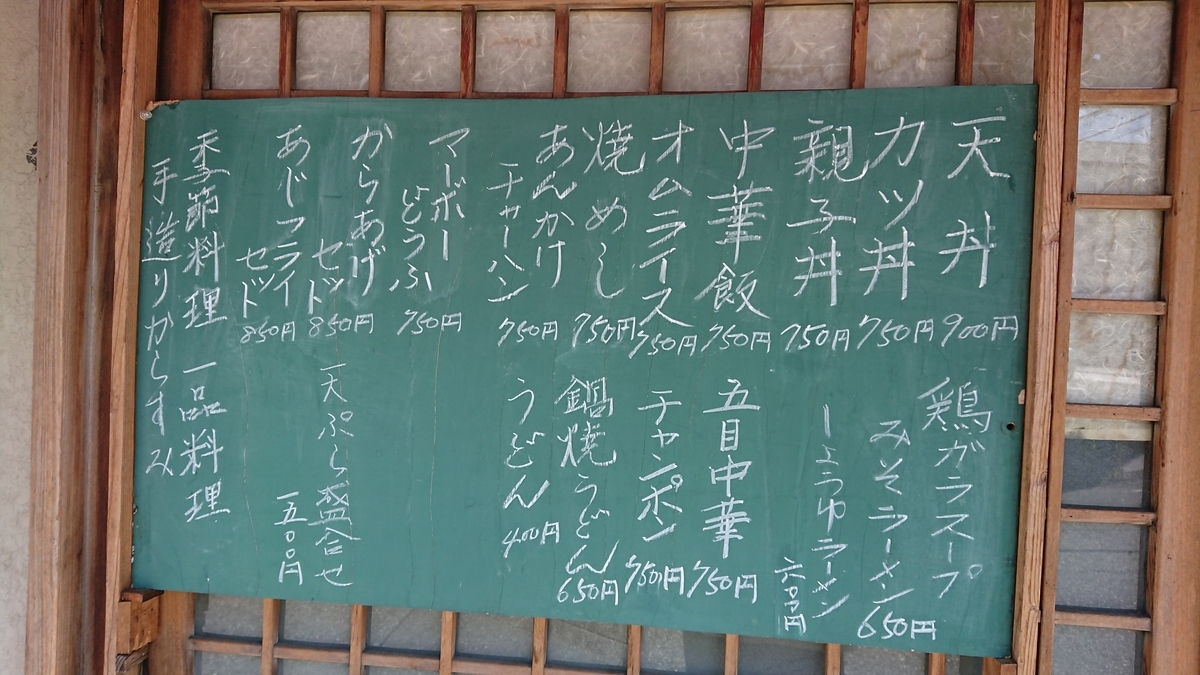 天丼 900円
カツ丼 750円
親子丼 750円
中華飯 750円
オムライス 750円
焼めし 750円
あんかけ
チャーハン 750円
マーボー
どうふ 750円
からあげ
セット 850円
あじフライ
セット 850円
鶏ガラスープ
みそラーメン 650円
しょうゆラーメン 六〇〇円
五目中華 750円
チャンポン 750円
鍋焼うどん 650円
うどん 400円
天ぷら盛合せ
五〇〇円
季節料理 一品料理
手造りからすみ